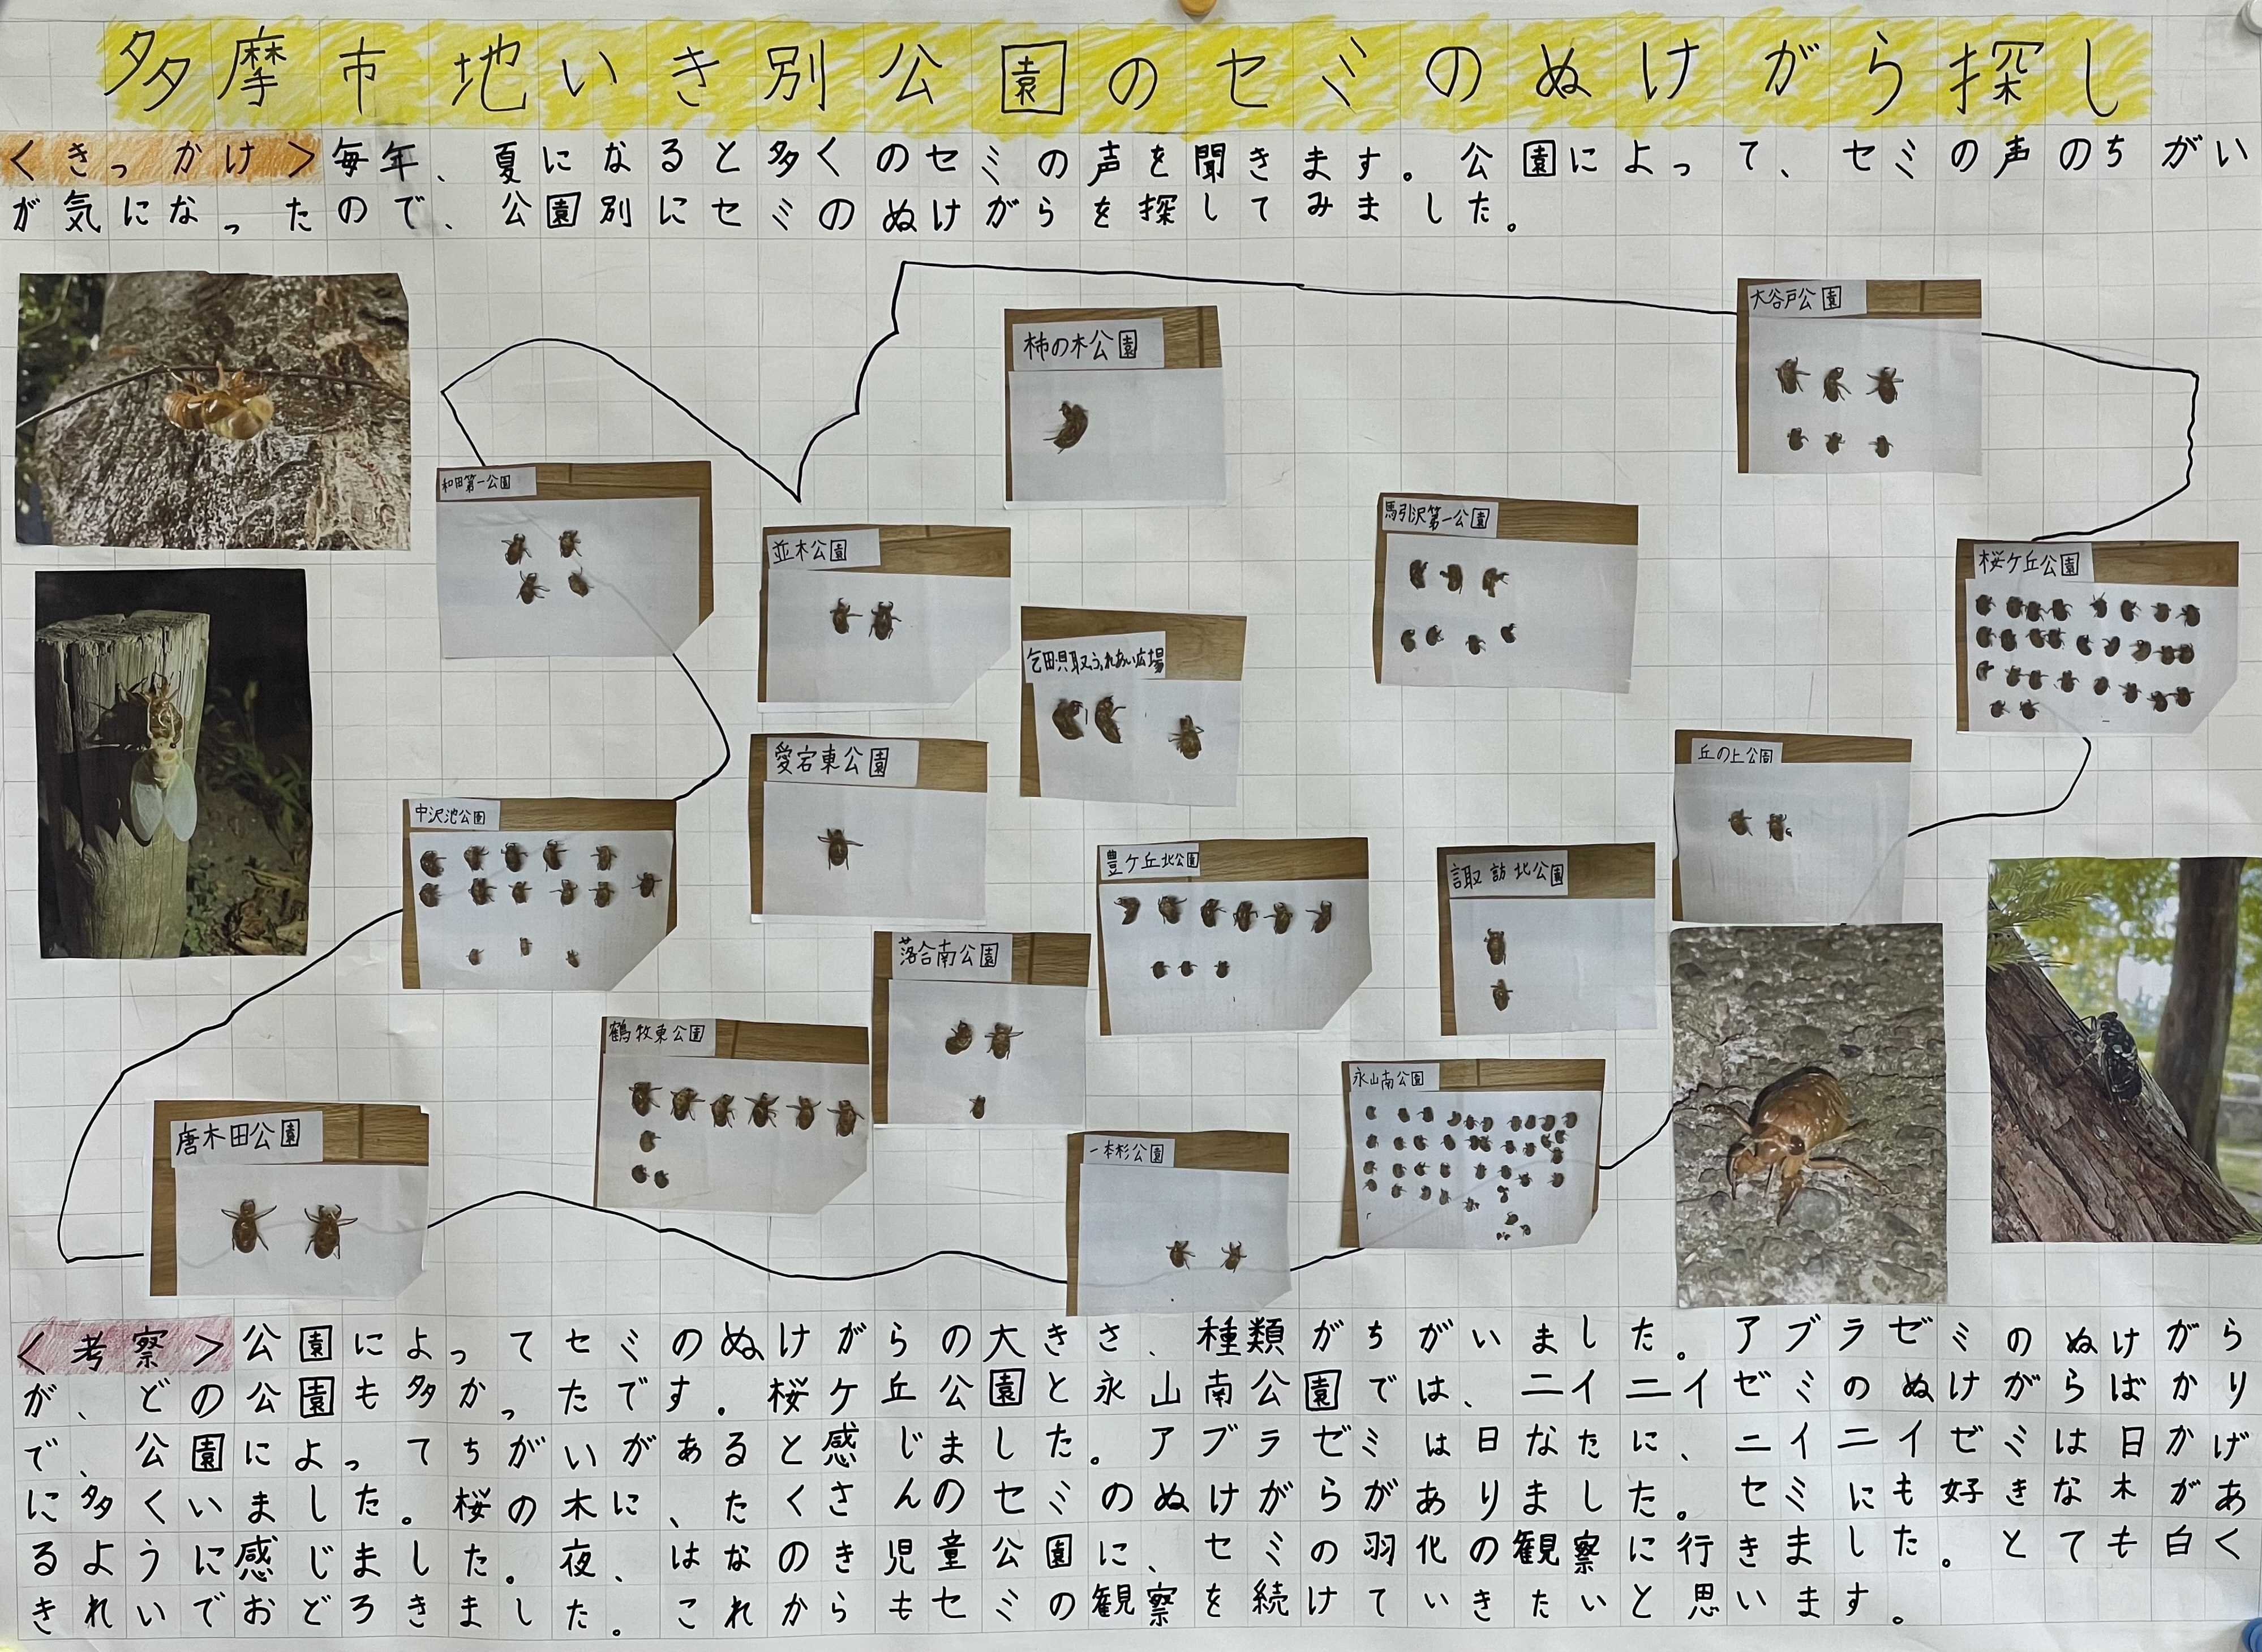 多摩市地いき別公園のセミのぬけがら探し
<きっかけ>毎年、夏になると多くのセミの声を聞きます。公園によって、セミの声のちがい
が気になったので、公園別にセミのぬけがらを探してみました。
大谷戸公園
柿の木公園
和田第一公園
馬引沢第一公園
並木公園
桜ケ丘公園
乞田・貝取ふれあい広場
丘の上公園
愛宕東公園
中沢池公園
豊ケ丘北公園
諏訪北公園
落合南公園
鶴牧東公園
永山南公園
唐木田公園
一本杉公園
<考察>公園によってセミのぬけがらの大きさ、種類がちがいました。アブラゼミのぬけがら
が、どの公園も多かったです。桜ケ丘公園と永山南公園では、ニイニイゼミのぬけがらばかり
で、公園によってちがいがあると感じました。アブラゼミは日なたに、ニイニイゼミは日かげ
に多くいました。桜の木に、たくさんのセミのぬけがらがありました。セミにも好きな木があ
るように感じました。夜、はなのき児童公園に、セミの羽化の観察に行きました。とても白く
きれいでおどろきました。これからもセミの観察を続けていきたいと思います。